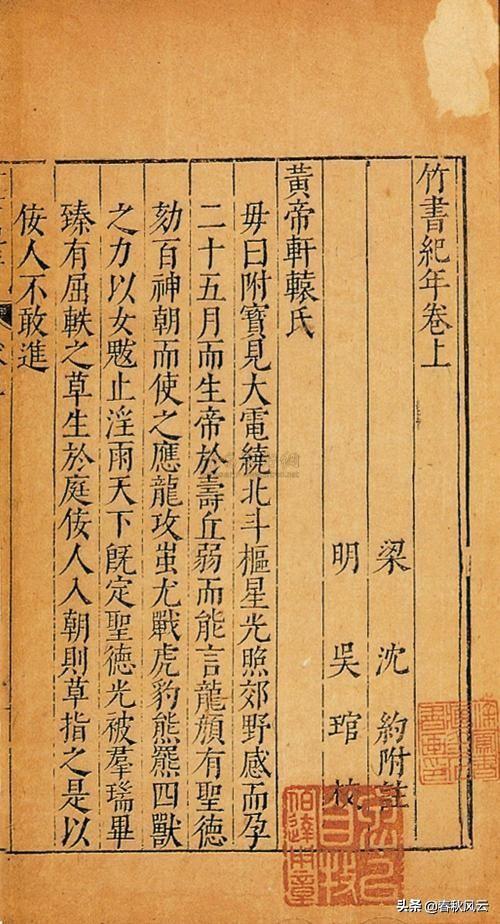 竹書紀年卷上
梁 沈 約附註
明 吳 琯 校
黃帝軒轅氏
母曰附寶見大電繞北斗樞星光照郊野感而孕
二十五月而生帝於壽丘弱而能言龍顏有聖德
劾百神朝而使之應龍攻蚩尤戰虎豹熊羆四獸
之力以女魃止淫雨天下旣定聖德光被羣瑞畢
臻有屈軼之草生於庭佞人入朝則草指之是以
佞人不敢進
头条 @春秋风云